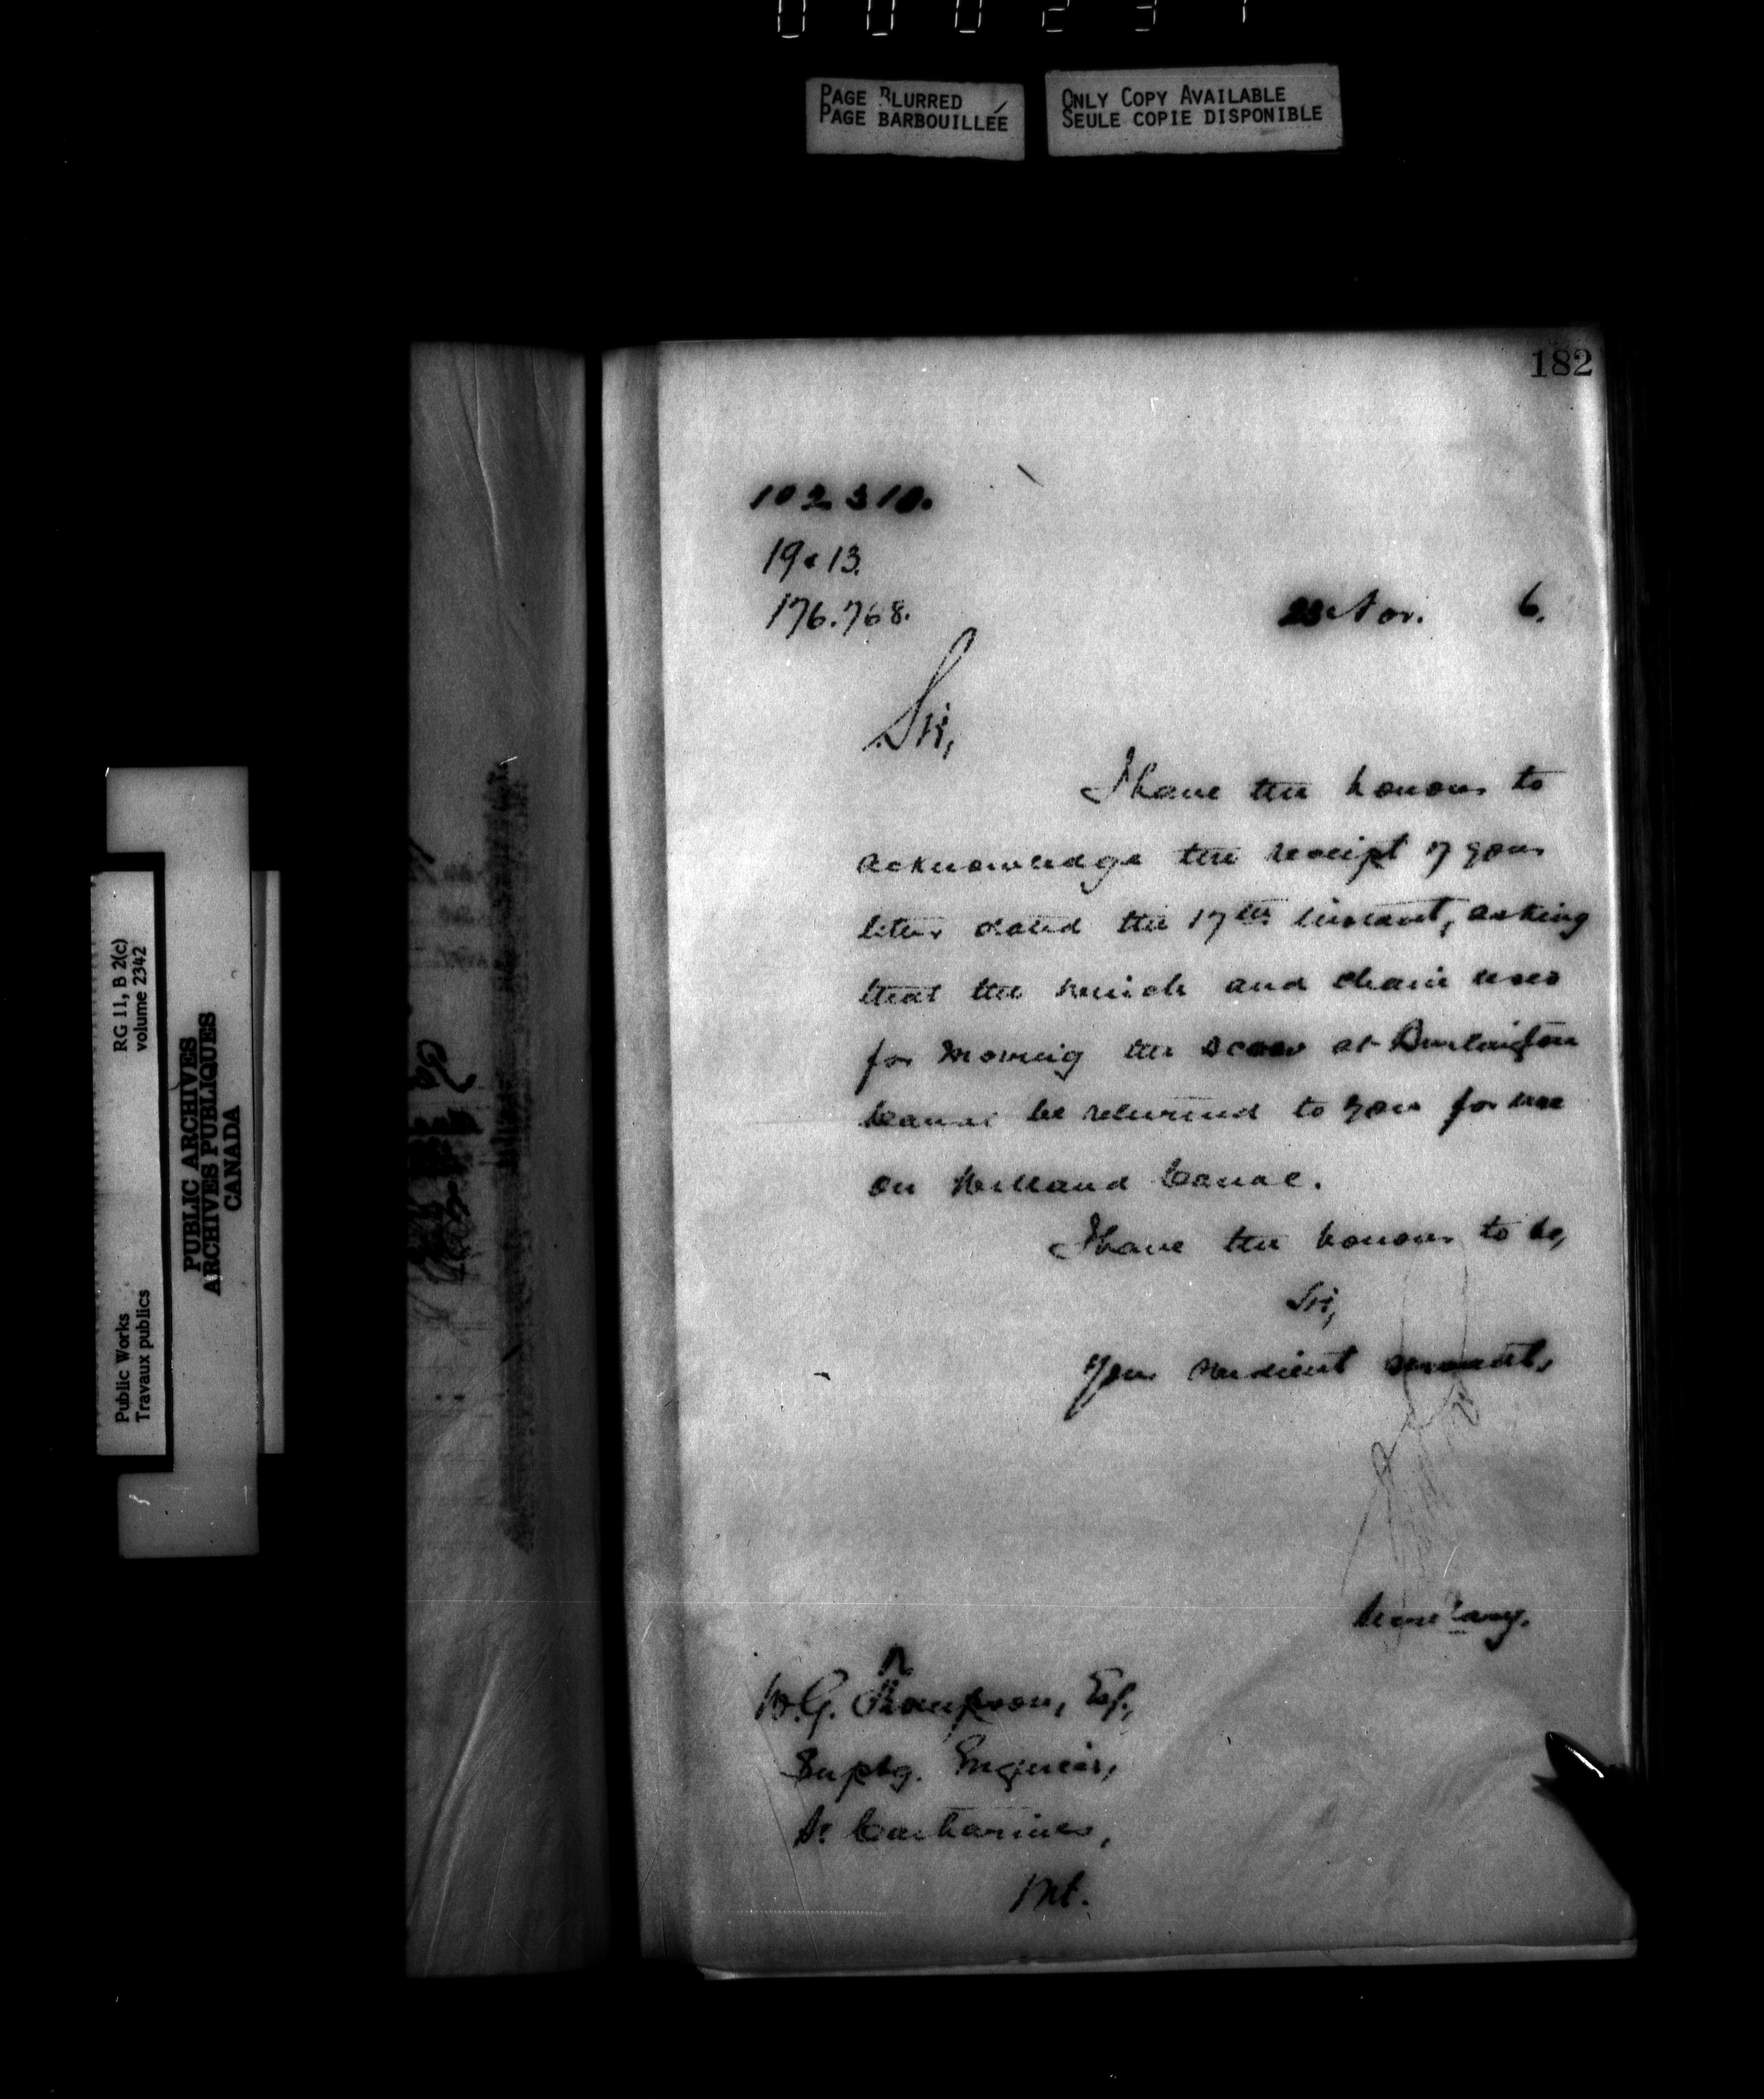 PAGE BLURRED
PAGE BARBOUILLÉE
ONLY COPY AVAILABLE
SEULE COPIE DISPONIBLE
RG 11, B 2(c)
volume 2342
Public Works
Travaux publics
PUBLIC ARCHIVES
ARCHIVES PUBLIQUES
CANADA
182
102310.
19 & 13.
176.768.
23 Nov. 6.
Sir,
I have the honour to
acknowledge the receipt of your
letter dated the 17th instant, asking
that the winch and chain used
for moving the scow at Burlington
Canal be returned to you for use
on Welland Canal.
I have the honour to be,
Sir,
Your obedient servant,
Secretary.
W.G. Thompson, Esq.,
Suptg. Engineer,
St. Catharines,
Ont.